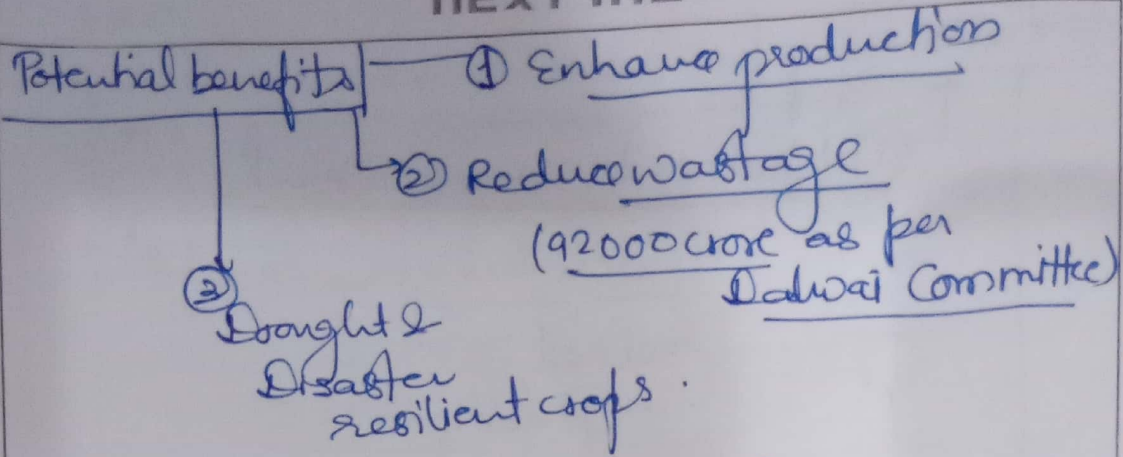 Potential benefits
① Enhance production
② Reduce wastage
(92000 crore as per
Dalwai Committee)
③ Drought &
Disaster
resilient crops.